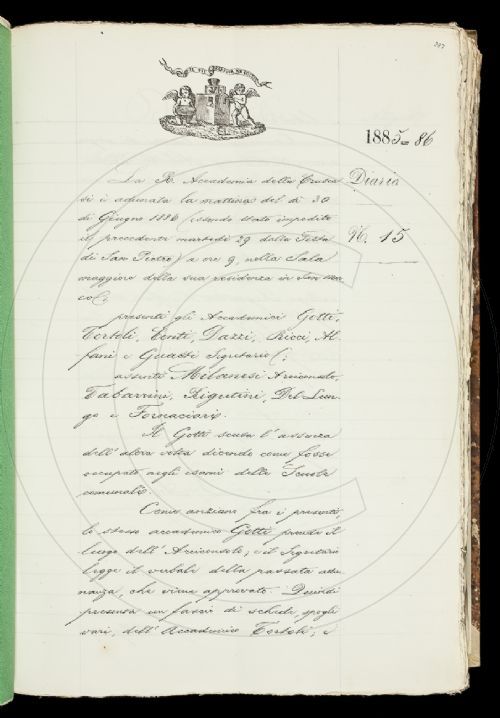 1885=86
Diario
N.º 15
La R. Accademia della Crusca
si è adunata la mattina del dì 30
di Giugno 1886 (essendo stato impedito
il precedente martedì 29 dalla Festa
di San Pietro) a ore 9, nella Sala
maggiore della sua residenza in San Mar
co;
presenti gli Accademici Gotti,
Tortoli, Conti, Dazzi, Ricci, Al-
fani e Guasti Segretario;
assenti Milanesi Arciconsolo,
Tabarrini, Rigutini, Del Lun-
go e Fornaciari.
Il Gotti scusa l'assenza
dell'altra volta dicendo come fosse
occupato negli esami delle Scuole
comunali.
Come anziano fra i presenti,
lo stesso accademico Gotti prende il
luogo dell'Arciconsolo; e il Segretario
legge il verbale della passata adu-
nanza, che viene approvato. Quindi
presenta un fascio di schede, spogli
vari, dell'Accademico Tortoli; e